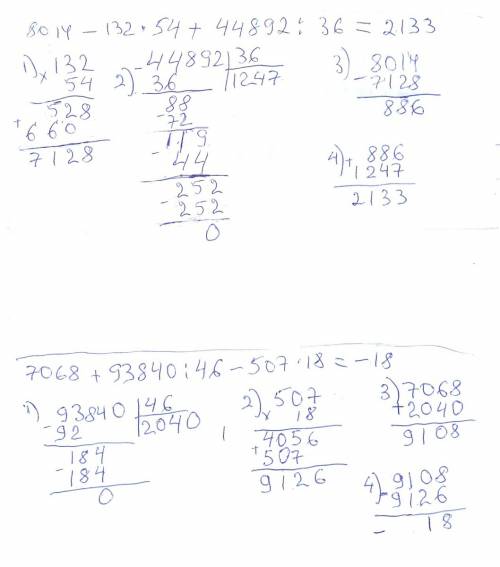 8014 - 132 · 54 + 44892 : 36 = 2133
1) × 132
54
528
+ 660
7128
2) - 44892 | 36
36 | 1247
88
- 72
119
- 44
252
- 252
0
3) 8014
- 7128
886
4) + 886
1247
2133
7068 + 93840 : 46 - 507 · 18 = -18
1) 93840 | 46
- 92 | 2040
184
- 184
0
2) 507
× 18
4056
+ 507
9126
3) 7068
+ 2040
9108
4) 9108
- 9126
- 18